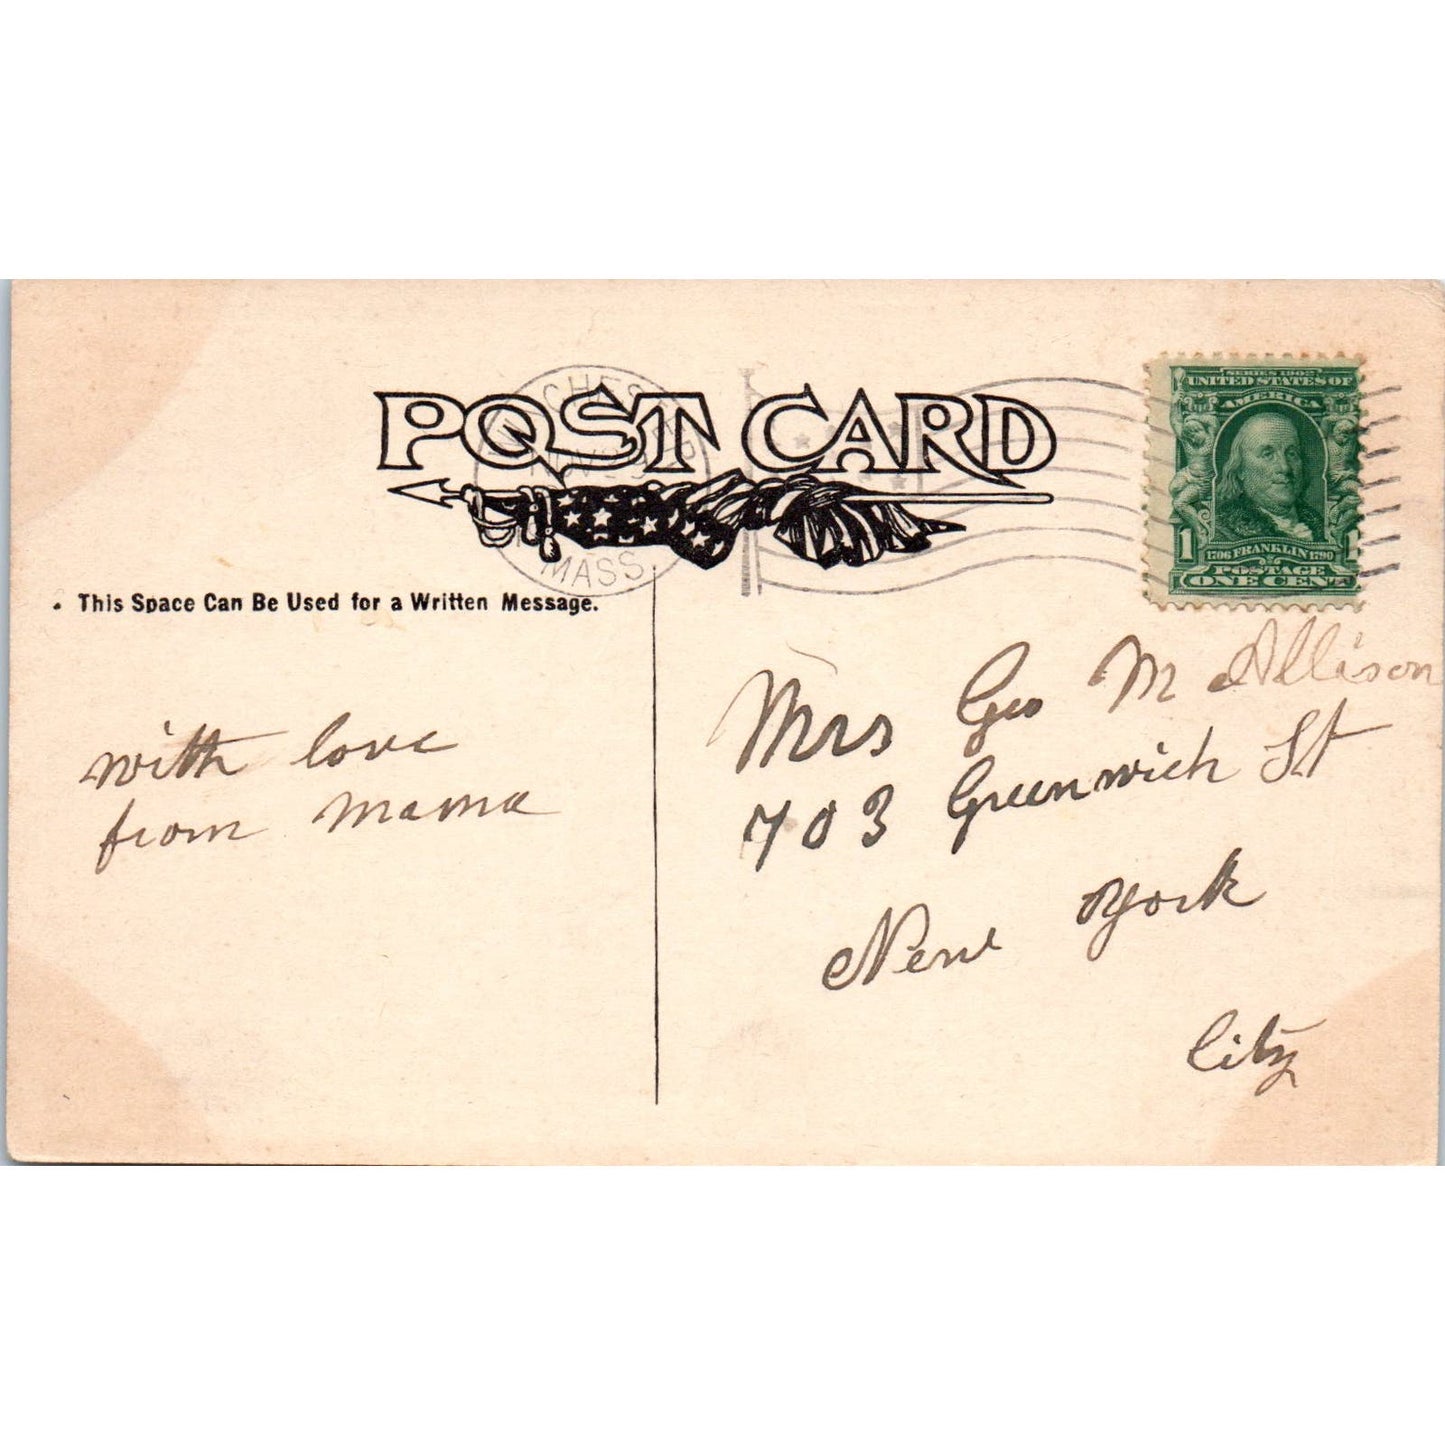 POST CARD
MASS.
SERIES 1902
UNITED STATES OF
AMERICA
1 1
1706 FRANKLIN 1790
POSTAGE
ONE CENT
This Space Can Be Used for a Written Message.
with love
from mama
Mrs Geo M Allison
703 Greenwich St
New York
City